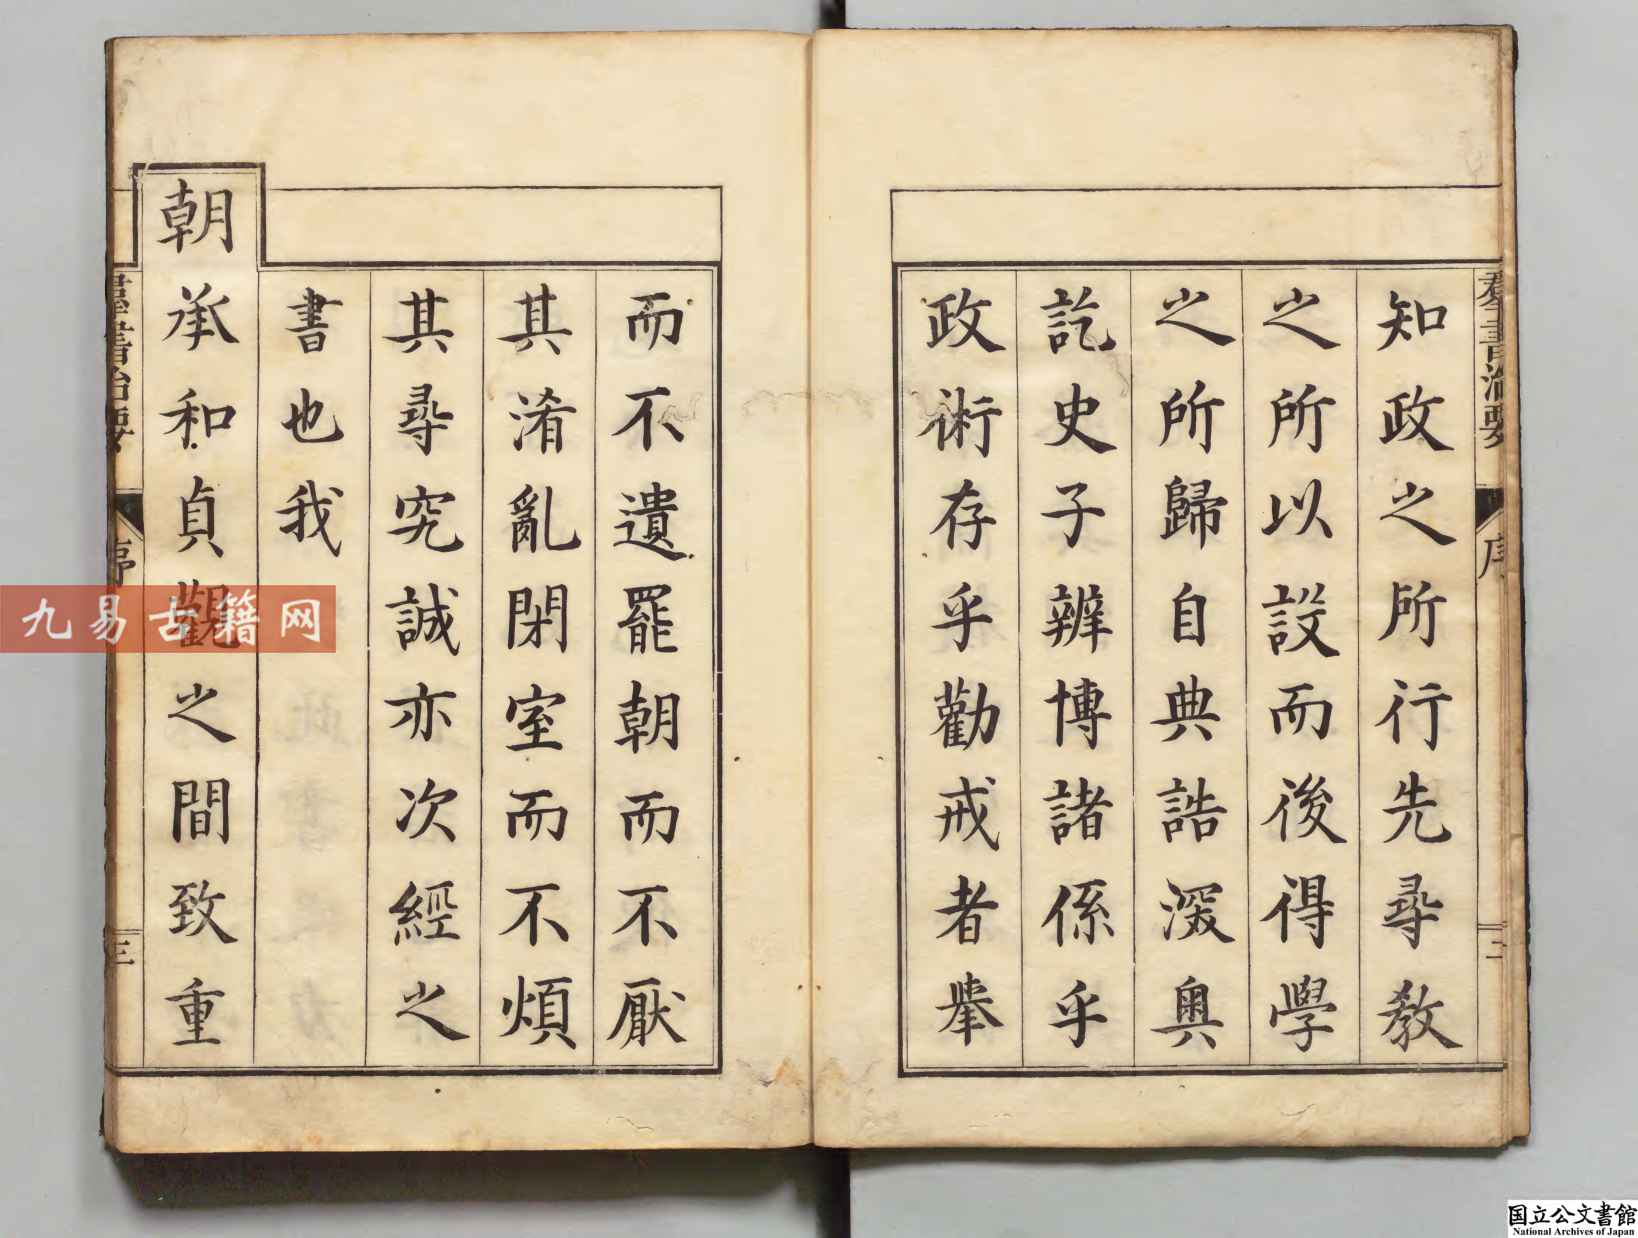 羣書治要
序
知政之所行先尋教
之所以設而後得學
之所歸自典誥深奥
訖史子辨博諸係乎
政術存乎勸戒者舉
而不遺罷朝而不厭
其淆亂閉室而不煩
其尋究誠亦次經之
書也我
朝承和貞觀之間致重
羣書治要
序
三
九易古籍网
国立公文書館
National Archives of Japan